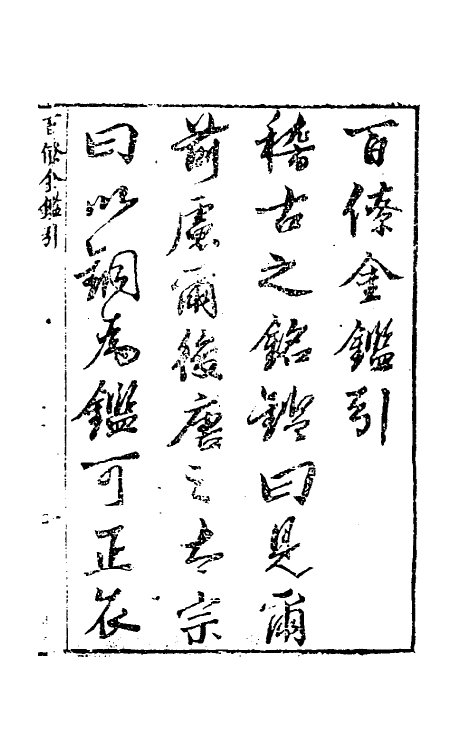 百僚金鑑引
稽古之銘鑑曰見爾
前慮爾後唐之太宗
曰以銅為鑑可正衣
百僚金鑑引